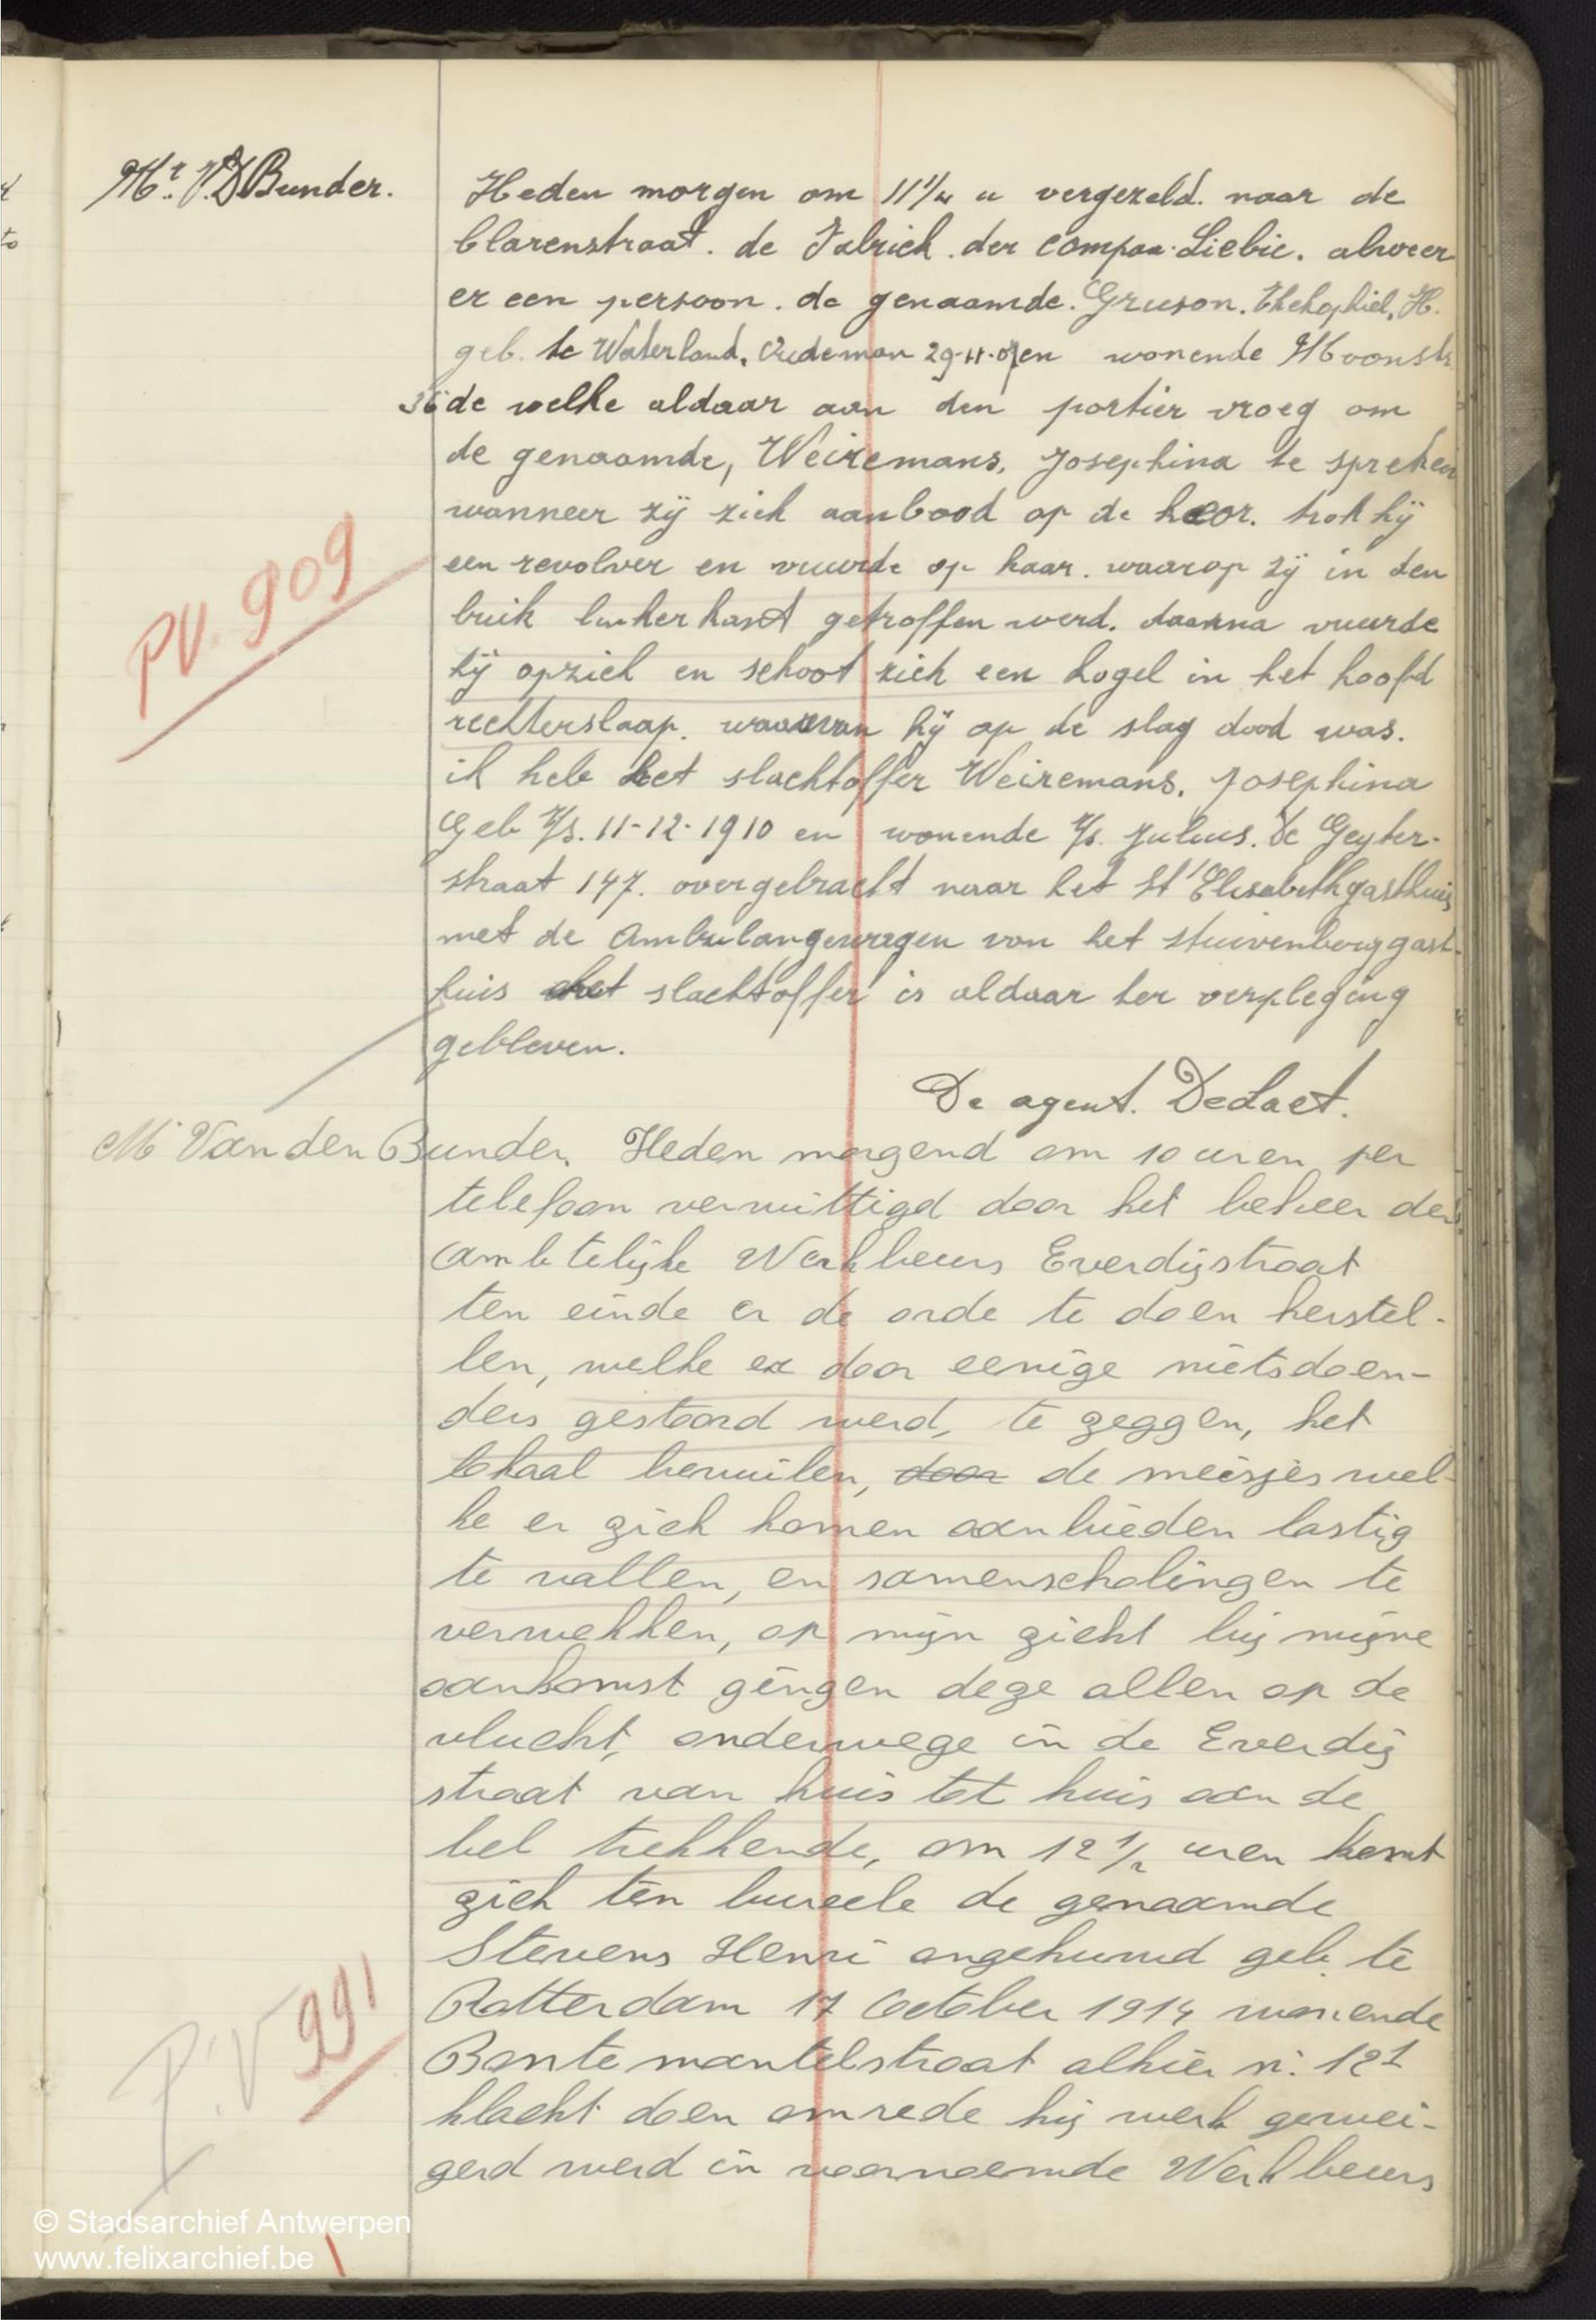 Mr. V. D Bunder.
Heden morgen om 11 1/4 u vergezeld. naar de
Clarenstraat. de Fabriek. der Compaa. Liebic. alweer
er een persoon. de genaamde. Gruson. Thehophiel, H.
geb. te Waterland, Oudeman 29-11-07 en wonende Moonstr
36 de welke aldaar aan den portier vroeg om
de genaamde, Weiremans, Josephina te spreken
wanneer zij zich aanbood op de koer. trok hij
een revolver en vuurde op haar. waarop zij in den
buik linkerkant getroffen werd. daarna vuurde
hij opzich en schoot zich een kogel in het hoofd
rechterslaap. waarvan hij op de slag dood was.
PV. 909
ik heb het slachtoffer Weiremans, Josephina
Geb. t/s. 11-12-1910 en wonende t/s. Julius. de Geyter-
straat 147. overgebracht naar het St Elisabethgasthuis
met de Ambulangewagen van het stuivenberggast-
huis het slachtoffer is aldaar ter verpleging
gebleven.
De agent. DeLaet.
Mr Van den Bunder. Heden morgend om 10 uren per
telefoon verwittigd door het beheer der
ambtelijke Werkbeurs Everdijstraat
ten einde er de orde te doen herstel-
len, welke er door eenige nietsdoen-
ders gestoord werd, te zeggen, het
lokaal bevuilen, door de meisjes wel-
ke er zich komen aanbieden lastig
te vallen, en samenscholingen te
verwekken, op mijn zicht bij mijne
aankomst gingen deze allen op de
vlucht, onderwege in de Everdij
straat van huis tot huis aan de
bel trekkende, om 12 1/2 uren komt
zich ten bureele de genaamde
Stevens Henri ongehuwd geb. te
Rotterdam 17 October 1914 wonende
P.V 991
Bontemantelstraat alhier n: 12 1
klacht doen omrede hij werk gewei-
gerd werd in voornoemde Werkbeurs
© Stadsarchief Antwerpen
www.felixarchief.be